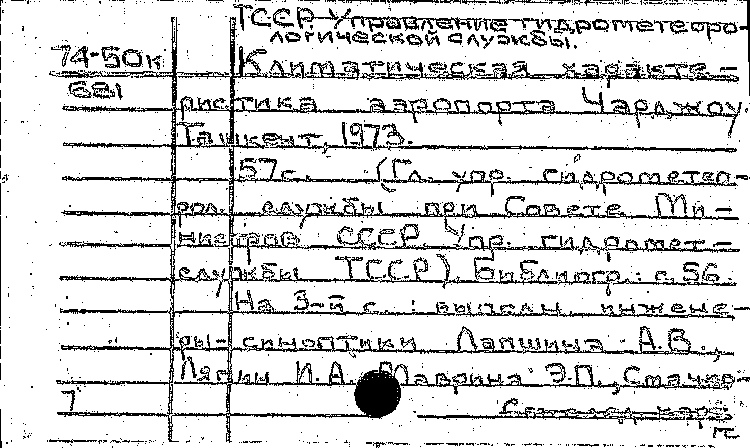 ТССР. Управление гидрометеоро-
логической службы.
74-50к Климатическая характе-
681
ристика аэропорта Чарджоу.
Ташкент, 1973.
57с. (Гл. упр. гидрометео-
рол. службы при Совете Ми-
нистров СССР. Упр. гидромет-
службы ТССР). Библиогр.: с. 56.
На 3-й с.: выполн. инжене-
ры-синоптики Лапшина А.В.,
Лягин И.А. Маврина Э.П.,
7